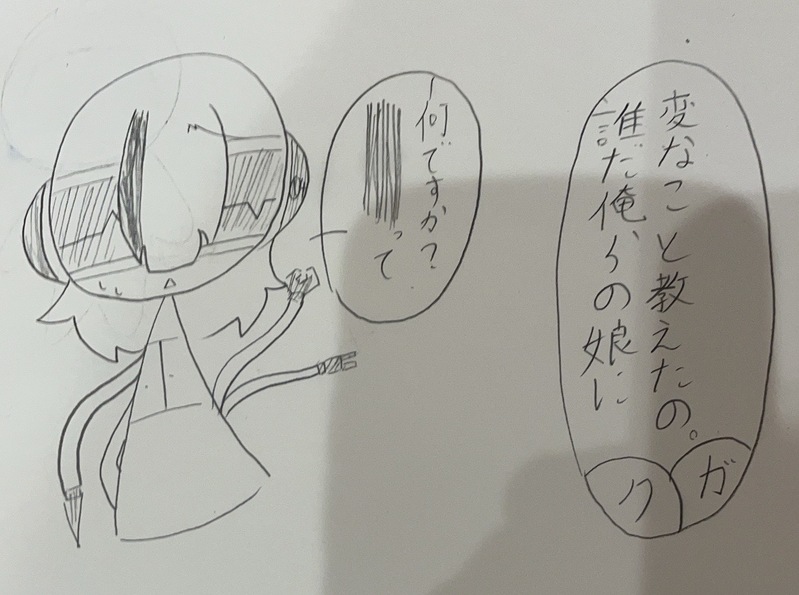 って
何ですか？
誰だ俺らの娘に
変なこと教えたの。
ク
ガ